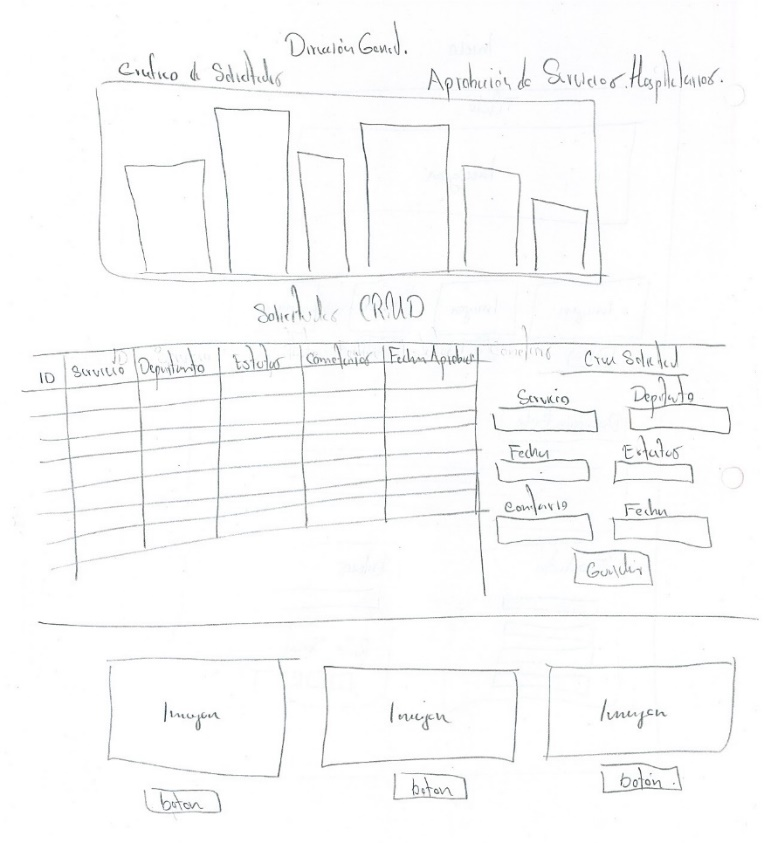 Dirección General.
Grafico de Solicitudes
Aprobación de Servicios Hospitalarios.
Solicitudes CRUD
ID Servicio Departamento Estatus Comentarios Fecha Aprobac
Crear Solicitud
Servicio Departamento
Fecha Estatus
Comentario Fecha
Guardar
Imagen Imagen Imagen
boton boton botón.